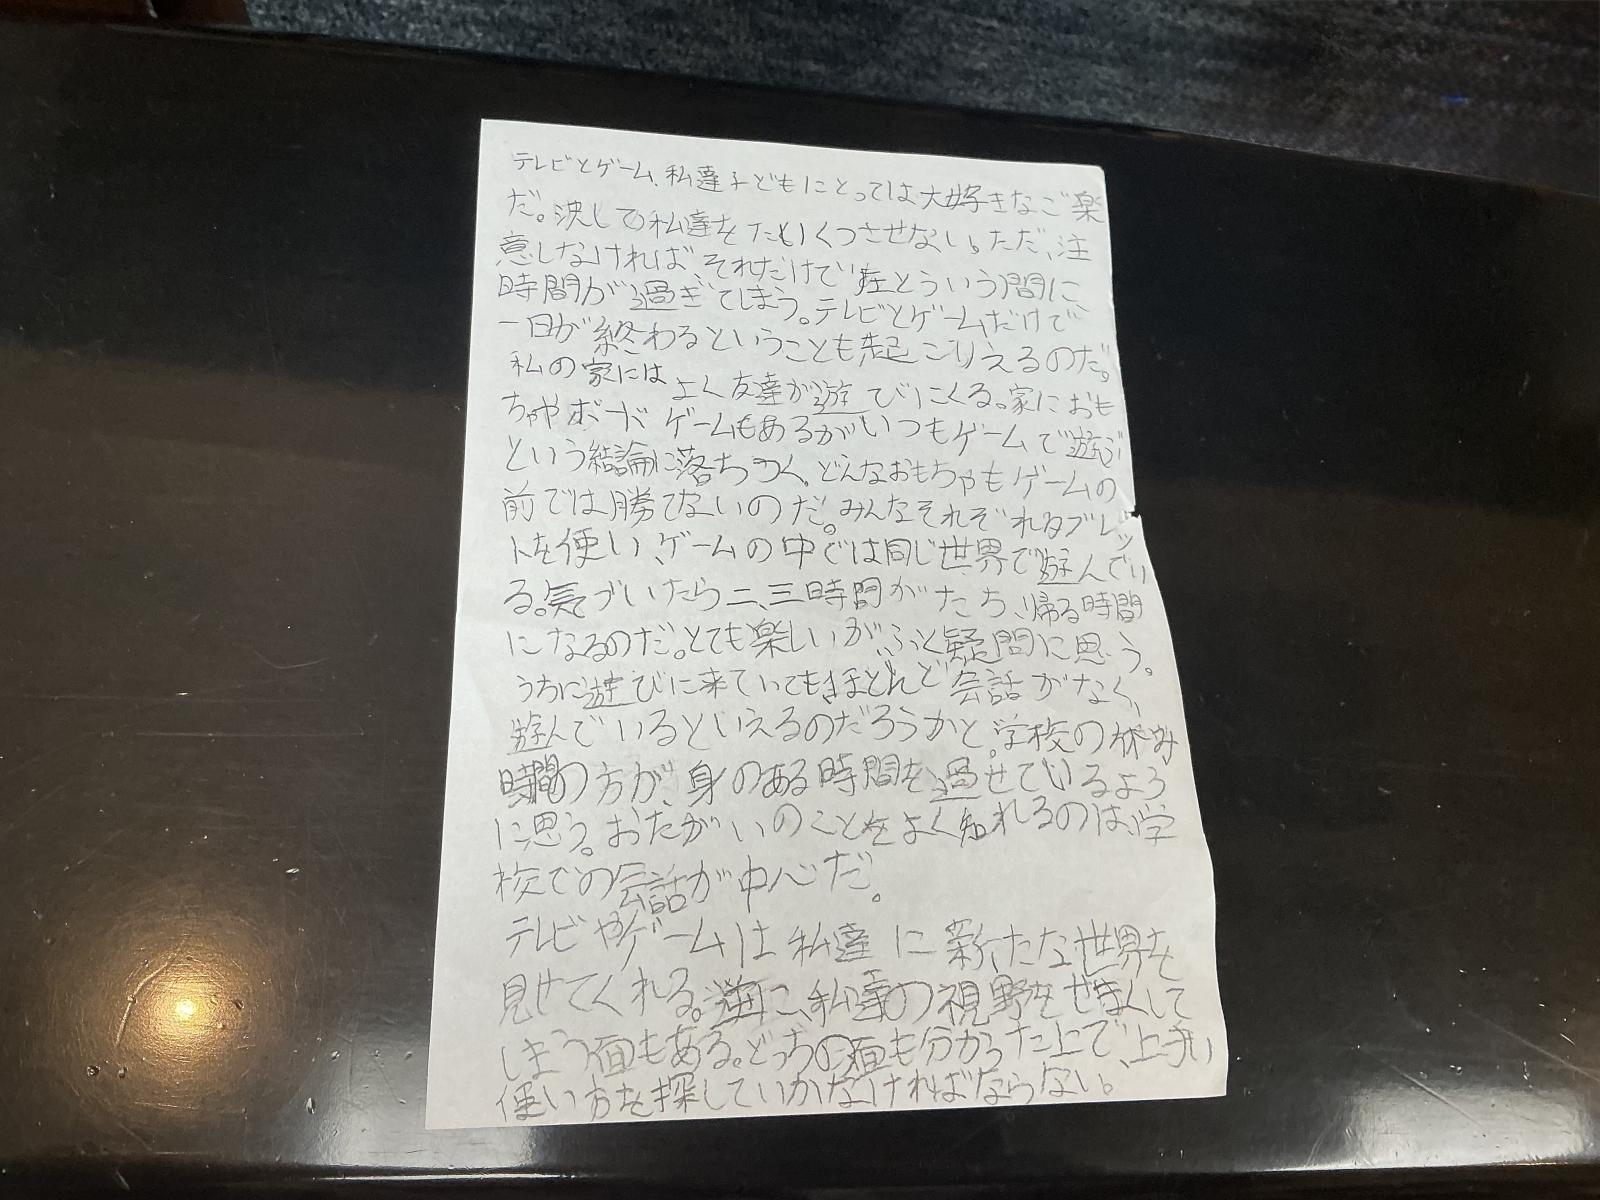 テレビとゲーム、私達子どもにとっては大好きなご楽
だ。決して私達をたいくつさせない。ただ、注
意しなければ、それだけであっという間に、
時間が過ぎてしまう。テレビとゲームだけで
一日が終わるということも起こりえるのだ。
私の家にはよく友達が遊びにくる。家におも
ちゃやボードゲームもあるがいつもゲームで遊ぶ
という結論に落ちつく。どんなおもちゃもゲームの
前では勝てないのだ。みんなそれぞれタブレッ
トを使い、ゲームの中では同じ世界で遊んでい
る。気づいたら二、三時間がたち、帰る時間
になるのだ。とても楽しいが、ふと疑問に思う。
うちに遊びに来ていてもほとんど会話がなく、
遊んでいるといえるのだろうかと。学校の休み
時間の方が、身のある時間を過せているよう
に思う。おたがいのことをよく知れるのは、学
校での会話が中心だ。
テレビやゲームは私達に新たな世界を
見せてくれる。逆に、私達の視野をせまくして
しまう面もある。どっちの面も分かった上で、上手い
使い方を探していかなければならない。